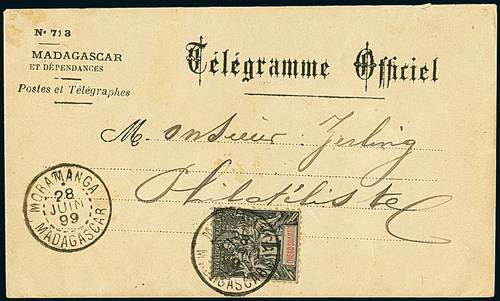 Nº 713
MADAGASCAR
ET DÉPENDANCES
Postes et Télégraphes
Télégramme Officiel
Monsieur Zerling
Philatéliste
MORAMANGA
28
JUIN
99
MADAGASCAR
DIEGO-SUAREZ
MADAGASCAR